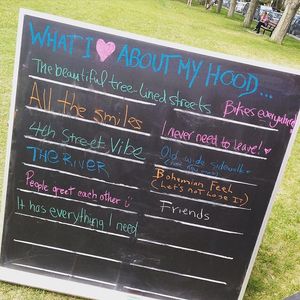 WHAT I ♥ ABOUT MY HOOD...
The beautiful tree-lined streets
Bikes everywhere
All the smiles
I never need to leave!
4th Street Vibe
Old wide sidewalks
THE RIVER
Bohemian Feel
(Let's not lose it)
People greet each other :)
Friends
It has everything I need